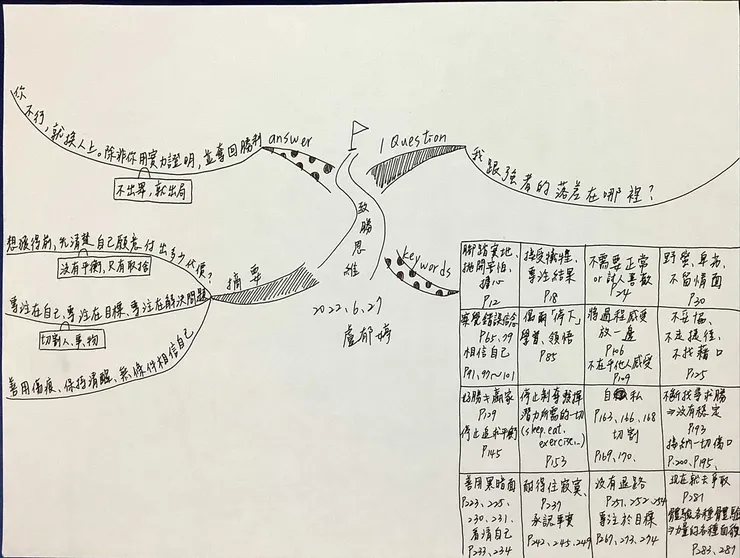 你不行，就換人上。除非你用實力證明，並奪回勝利
answer
不出眾，就出局
1 Question
我跟強者的落差在哪裡？
致勝思維
2022.6.27
盧郁婷
摘要
想獲得前，先清楚自己願意付出多少代價？
沒有平衡，只有取捨
專注在自己、專注在目標、專注在解決問題
切割人、事、物
善用傷痕、保持清醒、無條件相信自己
keywords
腳踏實地、
拋開害怕、
擔心
P12
接受犧牲、
專注結果
P18
不需要正常
or 討人喜歡
P24
野蠻、卑劣、
不留情面
P30
察覺錯誤信念
P65、79
相信自己
P91、97~101
偶爾「停下」
學習、領悟
P85
將過程感受
放一邊
P106
不在乎他人感受
P109
不妥協、
不走捷徑、
不找藉口
P125
好勝≠贏家
P129
停止追求平衡
P145
停止剝奪發揮
潛力所需的一切
(sleep.eat.
exercise...)
P153
自私
P163、166、168
切割
P169、170、
不斷找尋求勝
⇒沒有穩定
P193
接納一切傷口
P.200、P195、
善用黑暗面
P223、225、
230、231、
看清自己
P233、234
耐得住寂寞、
P237
承認事實
P242、245、249
沒有退路
P251、252、254
專注於目標
P267、273、274
現在就去爭取
P281
體驗各種
P283、287